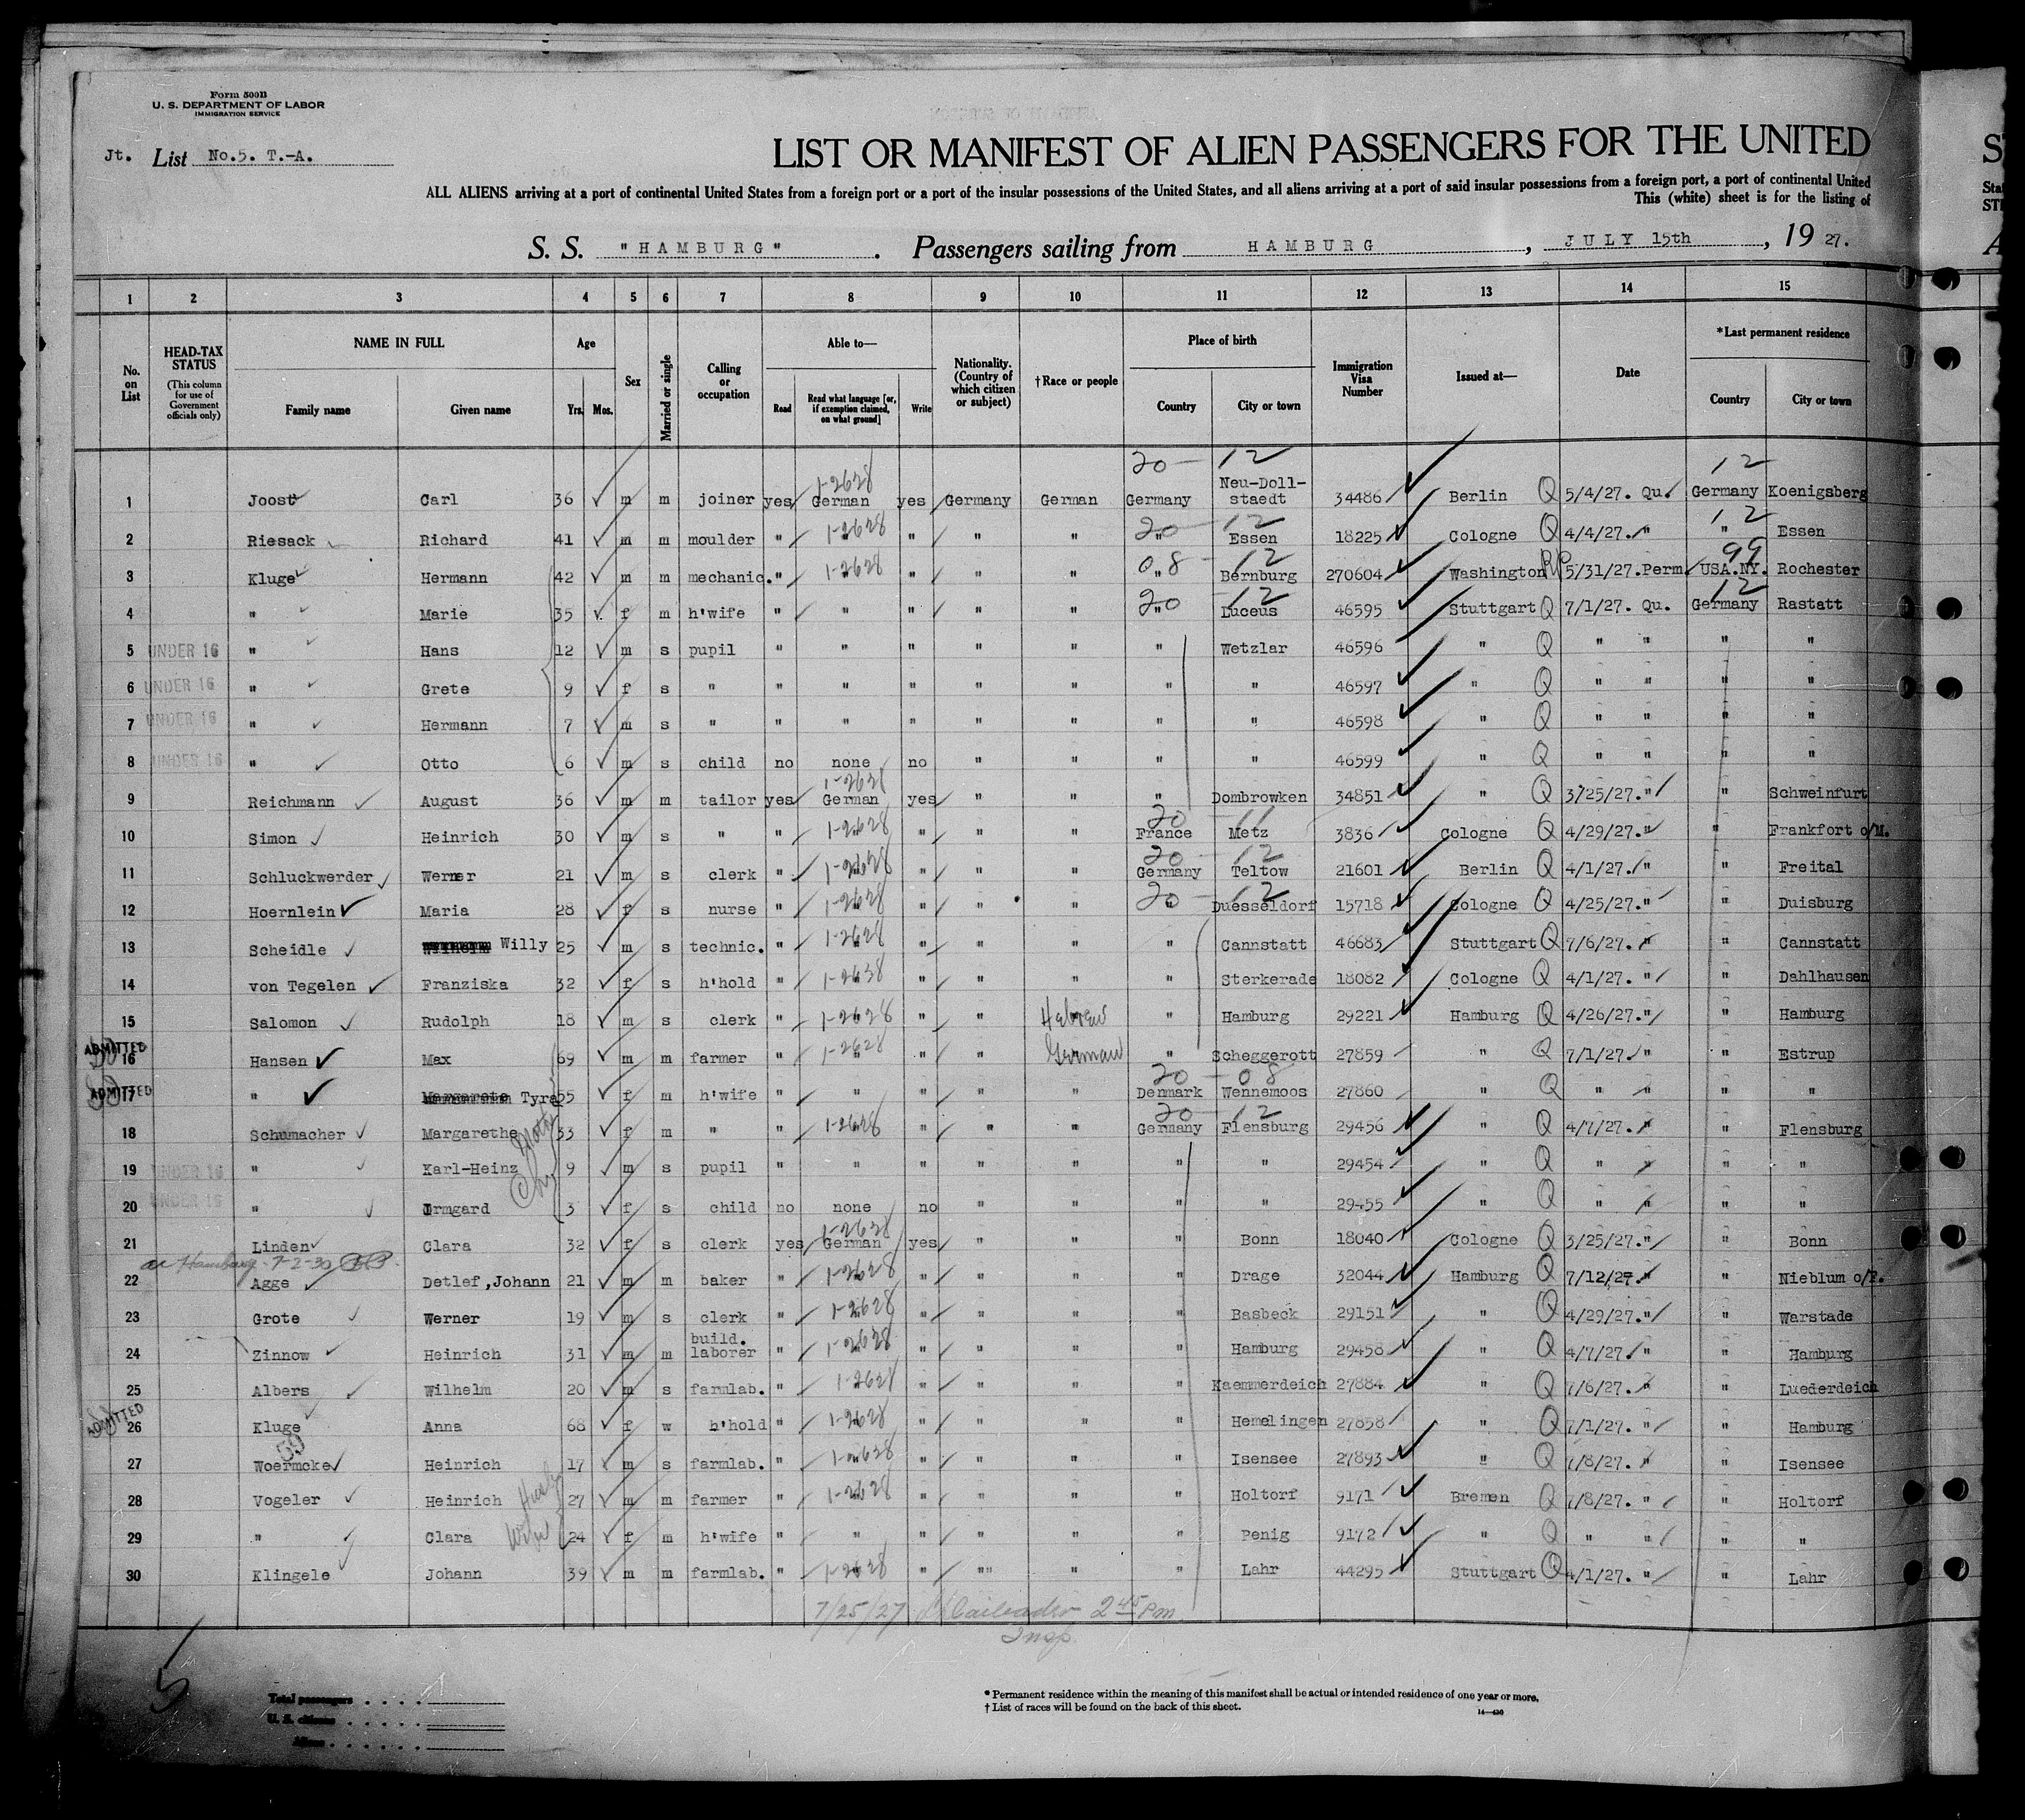 Form 500B
U. S. DEPARTMENT OF LABOR
IMMIGRATION SERVICE
Jt. List No.5. T.-A.
LIST OR MANIFEST OF ALIEN PASSENGERS FOR THE UNITED
ALL ALIENS arriving at a port of continental United States from a foreign port or a port of the insular possessions of the United States, and all aliens arriving at a port of said insular possessions from a foreign port, a port of continental United
This (white) sheet is for the listing of
S. S. "HAMBURG". Passengers sailing from HAMBURG, JULY 15th, 1927.
1 2 3 4 5 6 7 8 9 10 11 12 13 14 15
No. on List
HEAD-TAX STATUS (This column for use of Government officials only)
NAME IN FULL Family name Given name
Age Yrs. Mos.
Sex
Married or single
Calling or occupation
Able to— Read Read what language [or, if exemption claimed, on what ground] Write
Nationality. (Country of which citizen or subject)
†Race or people
Place of birth Country City or town
Immigration Visa Number
Issued at—
Date
*Last permanent residence Country City or town
20 12 12
1 Joost Carl 36 m m joiner yes German 1-2628 yes Germany German Germany Neu-Doll-staedt 34486 Berlin Q 5/4/27. Qu. Germany Koenigsberg
20 12 12
2 Riesack Richard 41 m m moulder " " 1-2628 " " " " Essen 18225 Cologne Q 4/4/27. " " Essen
08 12 99
3 Kluge Hermann 42 m m mechanic. " " 1-2628 " " " " Bernburg 270604 Washington 5/31/27. Perm. USA.NY. Rochester
20 12 12
4 " Marie 35 f m h'wife " " " " " " Luceus 46595 Stuttgart Q 7/1/27. Qu. Germany Rastatt
5 UNDER 16 " Hans 12 m s pupil " " " " " " Wetzlar 46596 " Q " " " "
6 UNDER 16 " Grete 9 f s " " " " " " " " 46597 " Q " " " "
7 UNDER 16 " Hermann 7 m s " " " " " " " " 46598 " Q " " " "
8 UNDER 16 " Otto 6 m s child no none no " " " " 46599 " Q " " " "
9 Reichmann August 36 m m tailor yes German 1-2628 yes " " " Dombrowken 34851 " Q 3/25/27. " " Schweinfurt
20 11
10 Simon Heinrich 30 m s " " " 1-2628 " " " France Metz 3836 Cologne Q 4/29/27. " " Frankfort o/M.
20 12
11 Schluckwerder Werner 21 m s clerk " " 1-2628 " " " Germany Teltow 21601 Berlin Q 4/1/27. " " Freital
20 12
12 Hoernlein Maria 28 f s nurse " " 1-2628 " " " " Duesseldorf 15718 Cologne Q 4/25/27. " " Duisburg
13 Scheidle Wilhelm Willy 25 m s technic. " " 1-2628 " " " " Cannstatt 46683 Stuttgart Q 7/6/27. " " Cannstatt
14 von Tegelen Franziska 32 f s h'hold " " 1-2638 " " " " Sterkerade 18082 Cologne Q 4/1/27. " " Dahlhausen
15 Salomon Rudolph 18 m s clerk " " 1-2628 " " Hebrew " Hamburg 29221 Hamburg Q 4/26/27. " " Hamburg
ADMITTED 16 Hansen Max 69 m m farmer " " 1-2628 " " German " Scheggerott 27859 " Q 7/1/27. " " Estrup
20 08
ADMITTED 17 " Margarete Tyra 55 f m h'wife " " " " " Denmark Wennemoos 27860 " Q " " " "
20 12
18 Schumacher Margarethe 33 f m " " " 1-2628 " " " Germany Flensburg 29456 " Q 4/7/27. " " Flensburg
19 UNDER 16 " Karl-Heinz 9 m s pupil " " " " " " " 29454 " Q " " " "
20 UNDER 16 " Irmgard 3 f s child no none no " " " " 29455 " Q " " " "
21 Linden Clara 32 f s clerk yes German 1-2628 yes " " " Bonn 18040 Cologne Q 3/25/27. " " Bonn
Hamburg 7-2-30
22 Agge Detlef,Johann 21 m m baker " " 1-2628 " " " " Drage 32044 Hamburg Q 7/12/27. " " Nieblum o/F.
23 Grote Werner 19 m s clerk " " 1-2628 " " " " Basbeck 29151 " Q 4/29/27. " " Warstade
24 Zinnow Heinrich 31 m m build. laborer " " 1-2638 " " " " Hamburg 29458 " Q 4/7/27. " " Hamburg
25 Albers Wilhelm 20 m s farmlab. " " 1-2628 " " " " Kaemmerdeich 27884 " Q 7/6/27. " " Luederdeich
ADMITTED 26 Kluge Anna 68 f w h'hold " " 1-2628 " " " " Hemelingen 27858 " Q 7/1/27. " " Hamburg
27 Woermcke Heinrich 17 m s farmlab. " " 1-2628 " " " " Isensee 27893 " Q 7/8/27. " " Isensee
28 Vogeler Heinrich Husb 27 m m farmer " " 1-2628 " " " " Holtorf 9171 Bremen Q 7/8/27. " " Holtorf
29 " Clara Wife 24 f m h'wife " " " " " " Penig 9172 " Q " " " "
30 Klingele Johann 39 m m farmlab. " " 1-2628 " "" " " Lahr 44295 Stuttgart Q 4/1/27. " " Lahr
7/25/27 2 45 Pm
Insp.
5
Total passengers
U. S. citizens
Aliens
* Permanent residence within the meaning of this manifest shall be actual or intended residence of one year or more.
† List of races will be found on the back of this sheet.
14—430